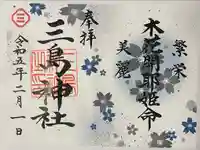 繁栄
木花開耶姫命
美麗
奉拝
三島神社
令和五年二月一日